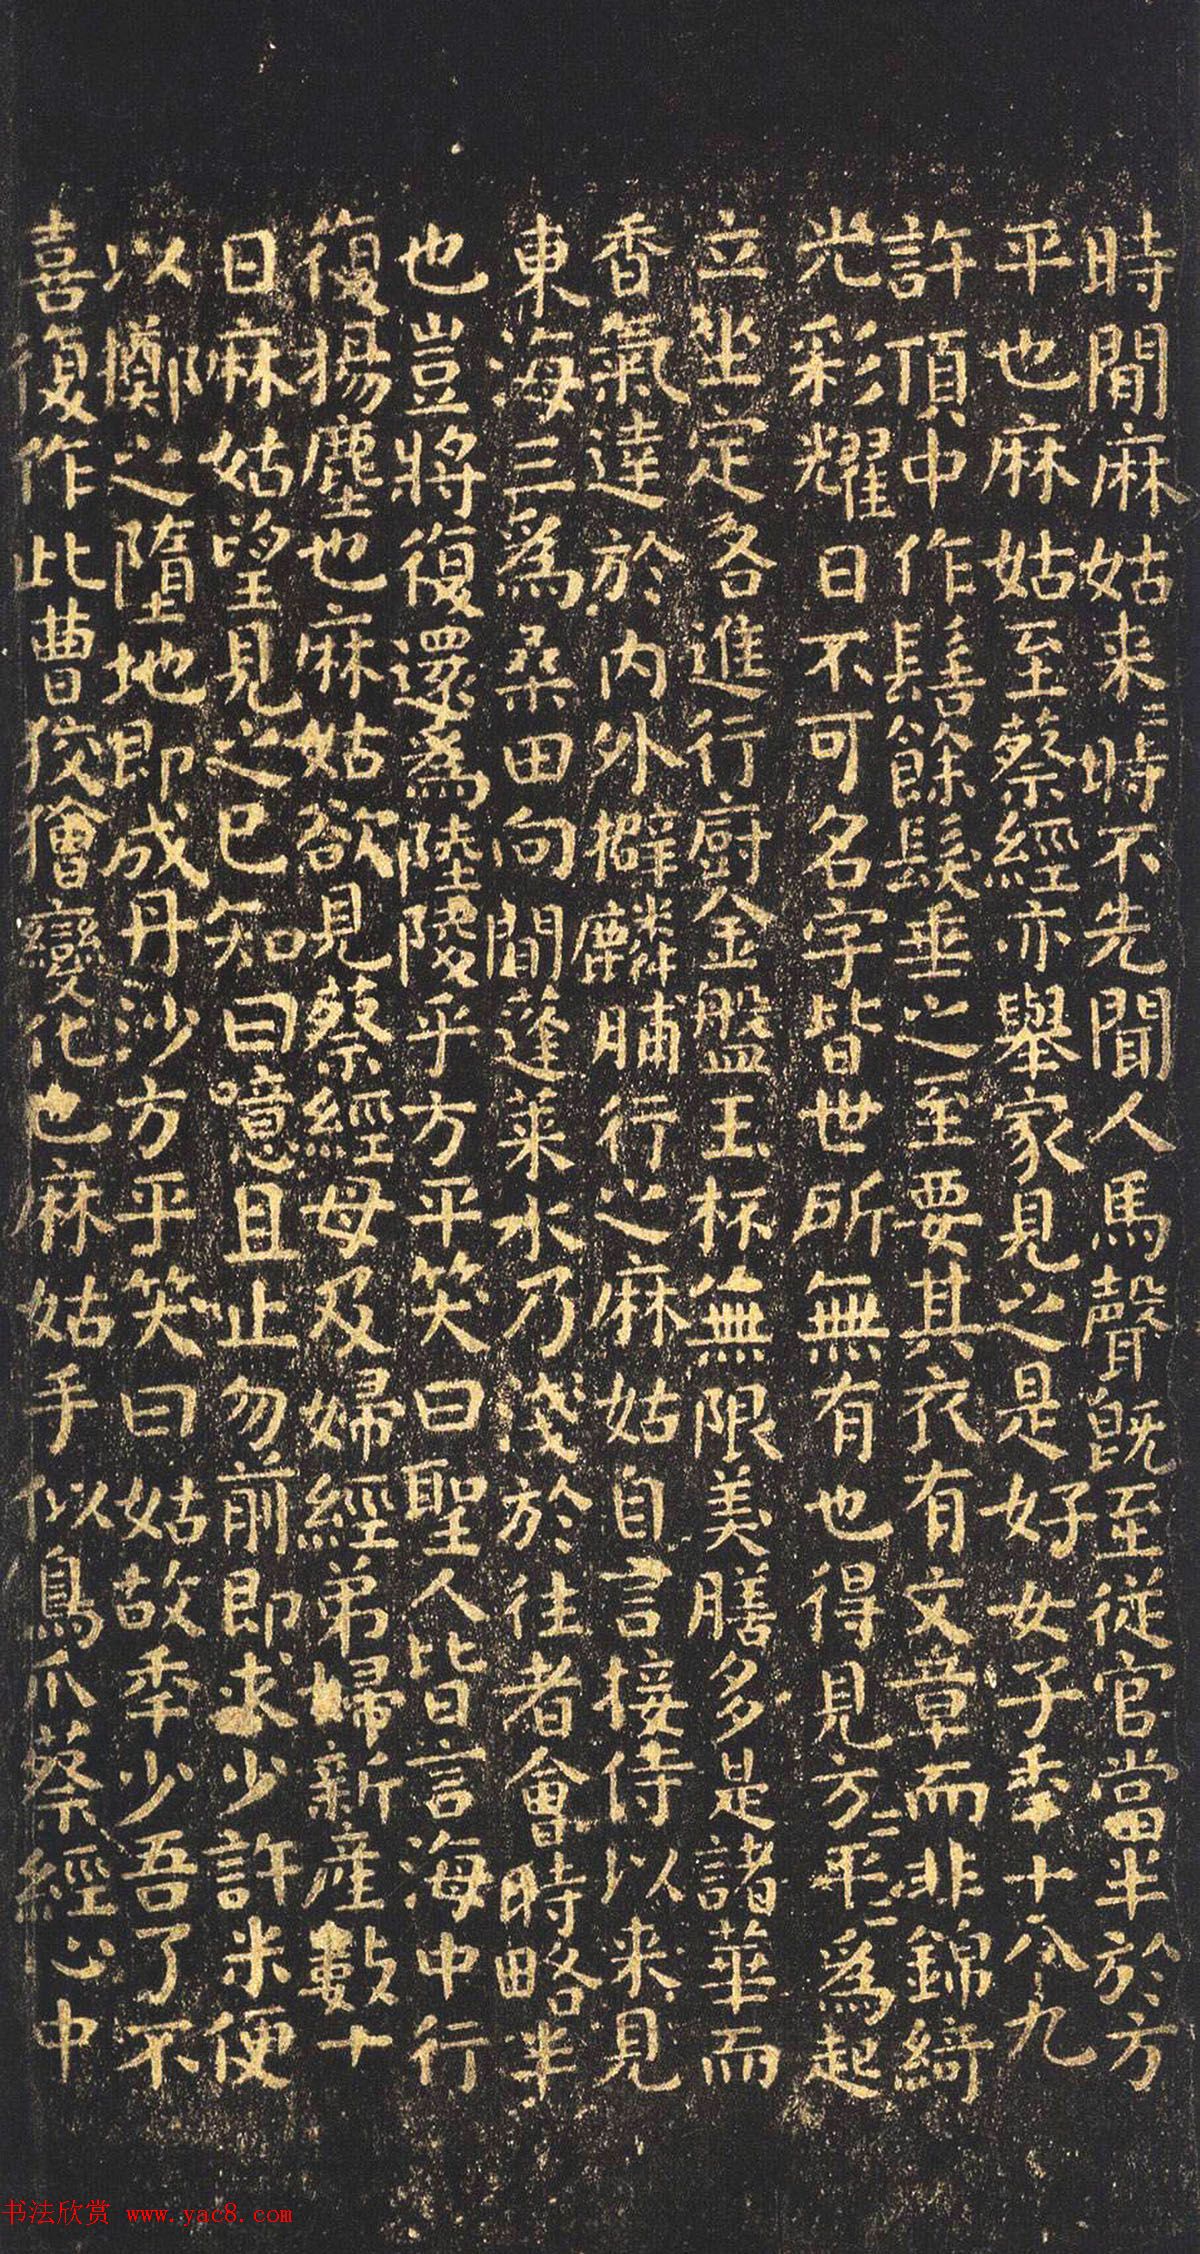 時間麻姑来〻時不先聞人馬聲既至從官當半於方
平也麻姑至蔡經亦舉家見之是好女子季十八九
許頂中作髻餘髮垂之至要其衣有文章而非錦綺
光彩耀日不可名字皆世所無有也得見方〻平〻為起
立坐定各進行厨金盤玉杯無限美膳多是諸華而
香氣達於內外擗麟脯行之麻姑自言接侍以来見
東海三為桑田向間蓬萊水乃淺於往者會時略半
也豈將復還為陸陵乎方平笑曰聖人皆言海中行
復揚塵也麻姑欲見蔡經母及婦經弟婦新產數十
日麻姑望見之已知曰噫且止勿前即求少許米便
以擲之墮地即成丹沙方平笑曰姑故季少吾了不
喜復作此曹狡獪變化也麻姑手似鳥爪蔡經心中
书法欣赏 www.yac8.com